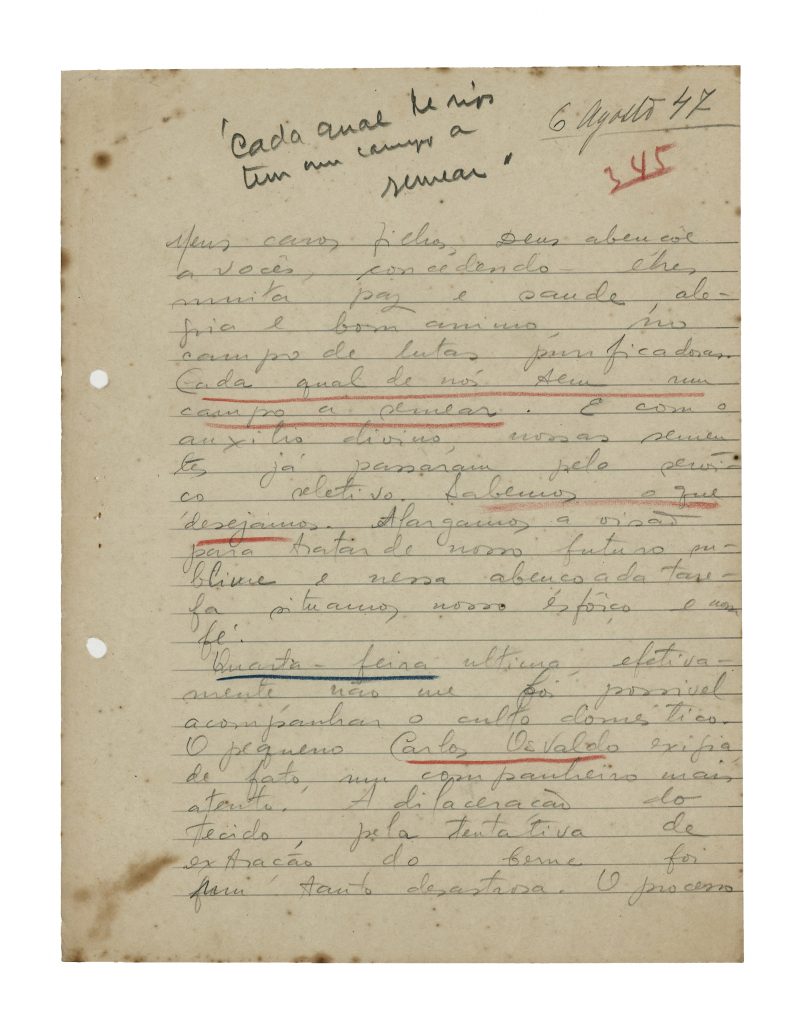 "Cada qual de nós
tem um campo a
semear"
6 Agosto 47
345
Meus caros filhos, Deus abençôe
a vocês, concedendo-lhes
muita paz e saude, ale-
gria e bom animo, no
campo de lutas purificadoras.
Cada qual de nós tem um
campo a semear. E com o
auxilio divino, nossas semen
tes já passaram pelo servi-
co seletivo. Sabemos o que
desejamos. Alargamos a visão
para tratar de nosso futuro su-
blime e nessa abencoada tare-
fa situamos nosso esfôrço e nossa
fé.
Quarta-feira ultima, efetiva-
mente não me foi possivel
acompanhar o culto doméstico.
O pequeno Carlos Osvaldo exigia,
de fato, um companheiro mais
atento. A dilaceração do
tecido, pela tentativa de
extração do berne foi
um tanto desastrosa. O processo